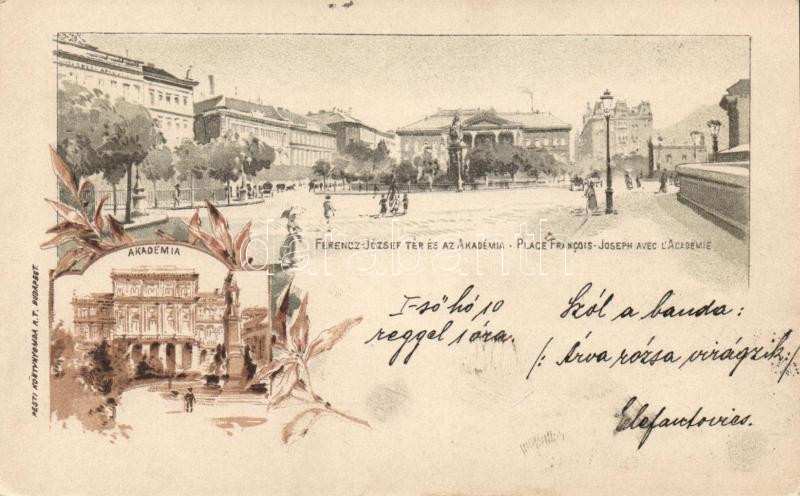 FERENCZ-JÓZSEF TÉR ÉS AZ AKADÉMIA · PLACE FRANÇOIS-JOSEPH AVEC L'ACADÉMIE
AKADÉMIA
PESTI KÖNYVNYOMDA R.T. BUDAPEST.
I-ső hó 10
reggel 1 óra.
Szól a banda:
/: Árva rózsa virágzik :/
Elefantovics.
darabanth